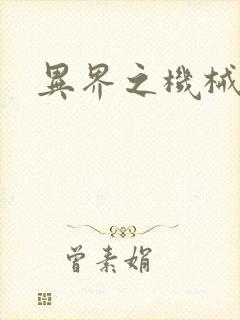 異界之機械
曾素娟